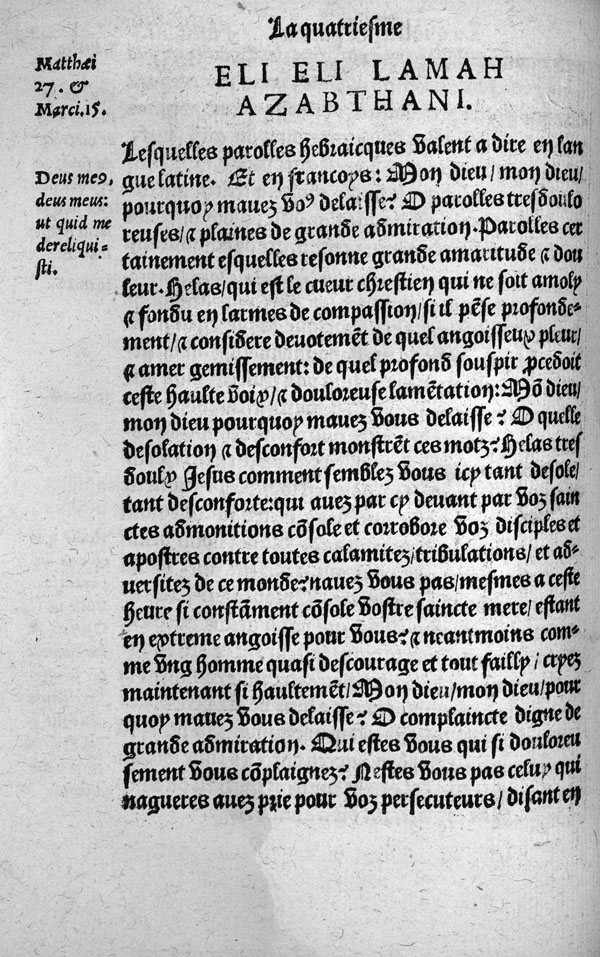 La quatriesme
Matthæi
27. &
Marci.15.
ELI ELI LAMAH
AZABTHANI.
Lesquelles parolles Hebraicques valent a dire en lan
gue latine. Et en francoys: Mon dieu/mon dieu/
pourquoy mauez voꝰ delaisse? O parolles tresdoulo
reuses/⁊ plaines de grande admiration. Parolles cer
tainement esquelles resonne grande amaritude ⁊ dou
leur. Helas/qui est le cueur chrestien qui ne soit amoly
⁊ fondu en larmes de compassion/si il pēse profonde-
ment/⁊ considere deuotemēt de quel angoisseux pleur/
⁊ amer gemissement: de quel profond souspir ꝓcedoit
ceste haulte voix/⁊ douloreuse lamētation: Mō dieu/
mon dieu pourquoy mauez vous delaisse? O quelle
desolation ⁊ desconfort monstrēt ces motz? Helas tres
doulx Jesus comment semblez vous icy tant desole/
tant desconforte: qui auez par cy deuant par voz sain
ctes admonitions cōsole et corrobore voz disciples et
apostres contre toutes calamitez/tribulations/et ad-
uersitez de ce monde? nauez vous pas/mesmes a ceste
heure si constāment cōsole vostre saincte mere/estant
en extreme angoisse pour vous? ⁊ neantmoins com-
me vng homme quasi descourage et tout failly/cryez
maintenant si haultemēt/Mon dieu/mon dieu/pour
quoy mauez vous delaisse? O complaincte digne de
grande admiration. Qui estes vous qui si douloreu
sement vous cōplaignez? Nestes vous pas celuy qui
nagueres auez prie pour voz persecuteurs/disant en
Deus meꝰ,
deus meus:
ut quid me
dereliqui-
sti.